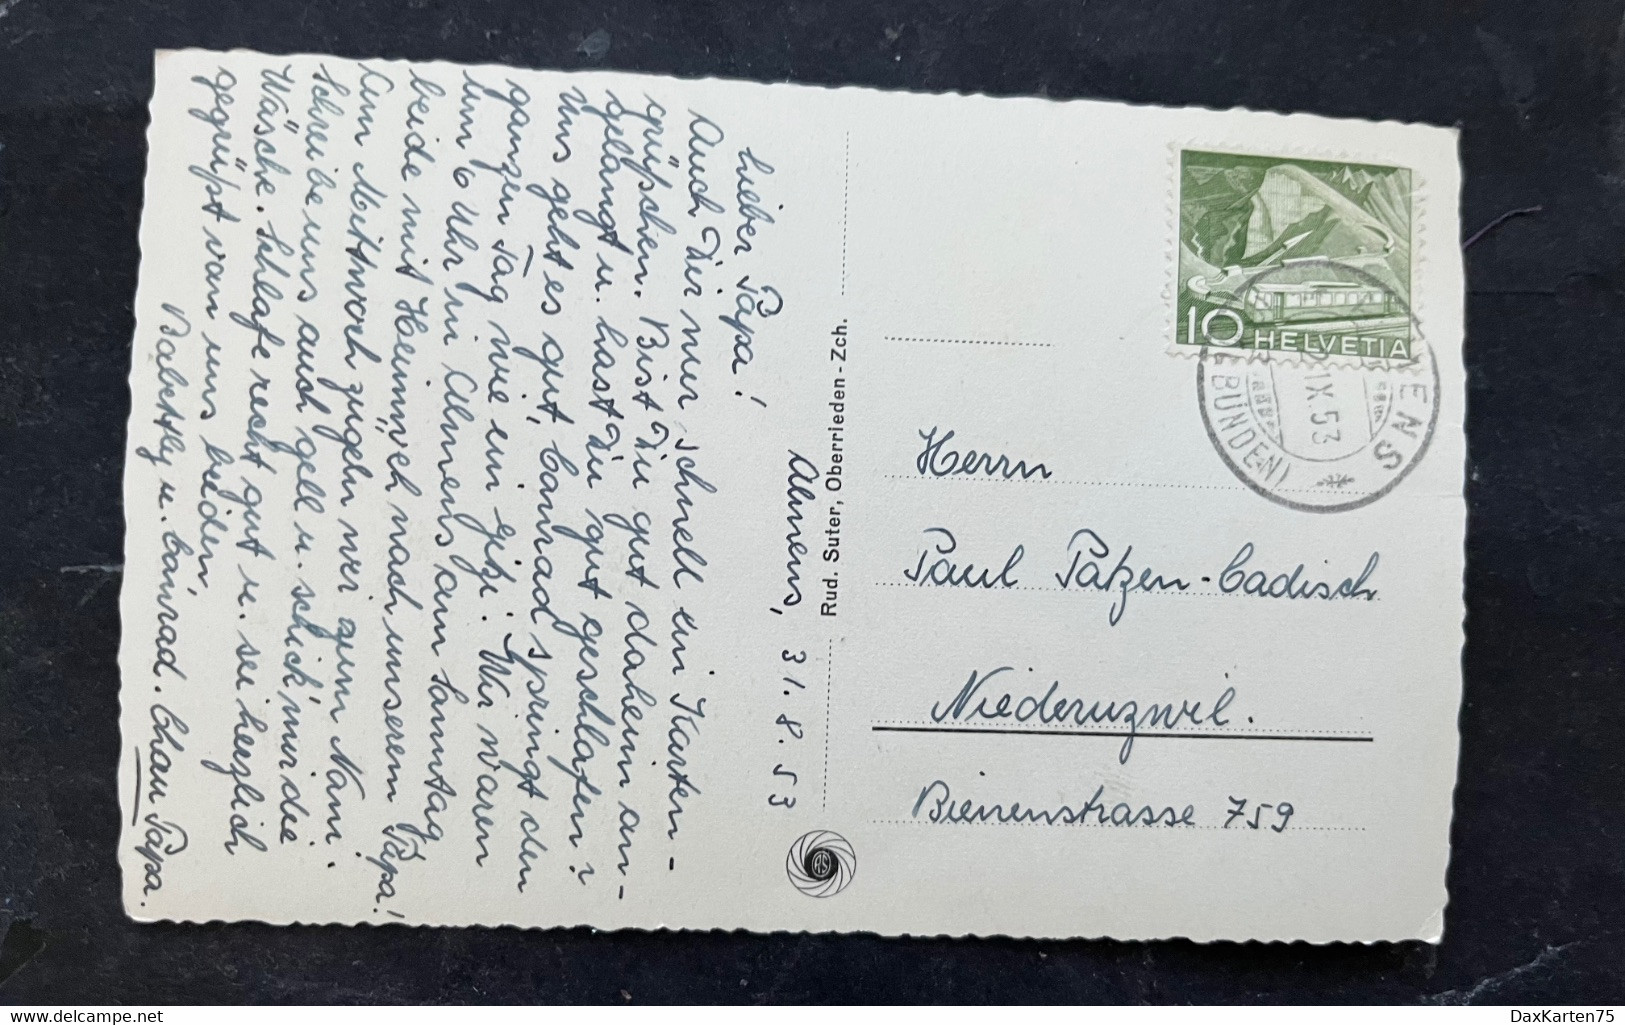 Almens, 31.8.53
Lieber Papa!
Auch Dir nur schnell ein Karten-
grüsschen. Bist Du gut daheim an-
gelangt u. hast Du gut geschlafen?
Uns geht es gut, Conrad springt den
ganzen Tag wie ein gizi. Wir waren
um 6 Uhr in Almens am Sonntag
beide mit Heimweh nach unserem Papa!
Am Mittwoch zügeln wir zum Nani.
Schreibe uns auch gell u. schick' mir die
Wäsche. Schlafe recht gut u. sei herzlich
gegrüsst von uns beiden
Babettly u. Conrad. Chau Papa.
Rud. Suter, Oberrieden-Zch.
RS
10 HELVETIA
ENS
IX. 53
BÜNDEN)
Herrn
Paul Patzen-Cadisch
Niederuzwil.
Bienenstrasse 759
delcampe.net
DaxKarten75